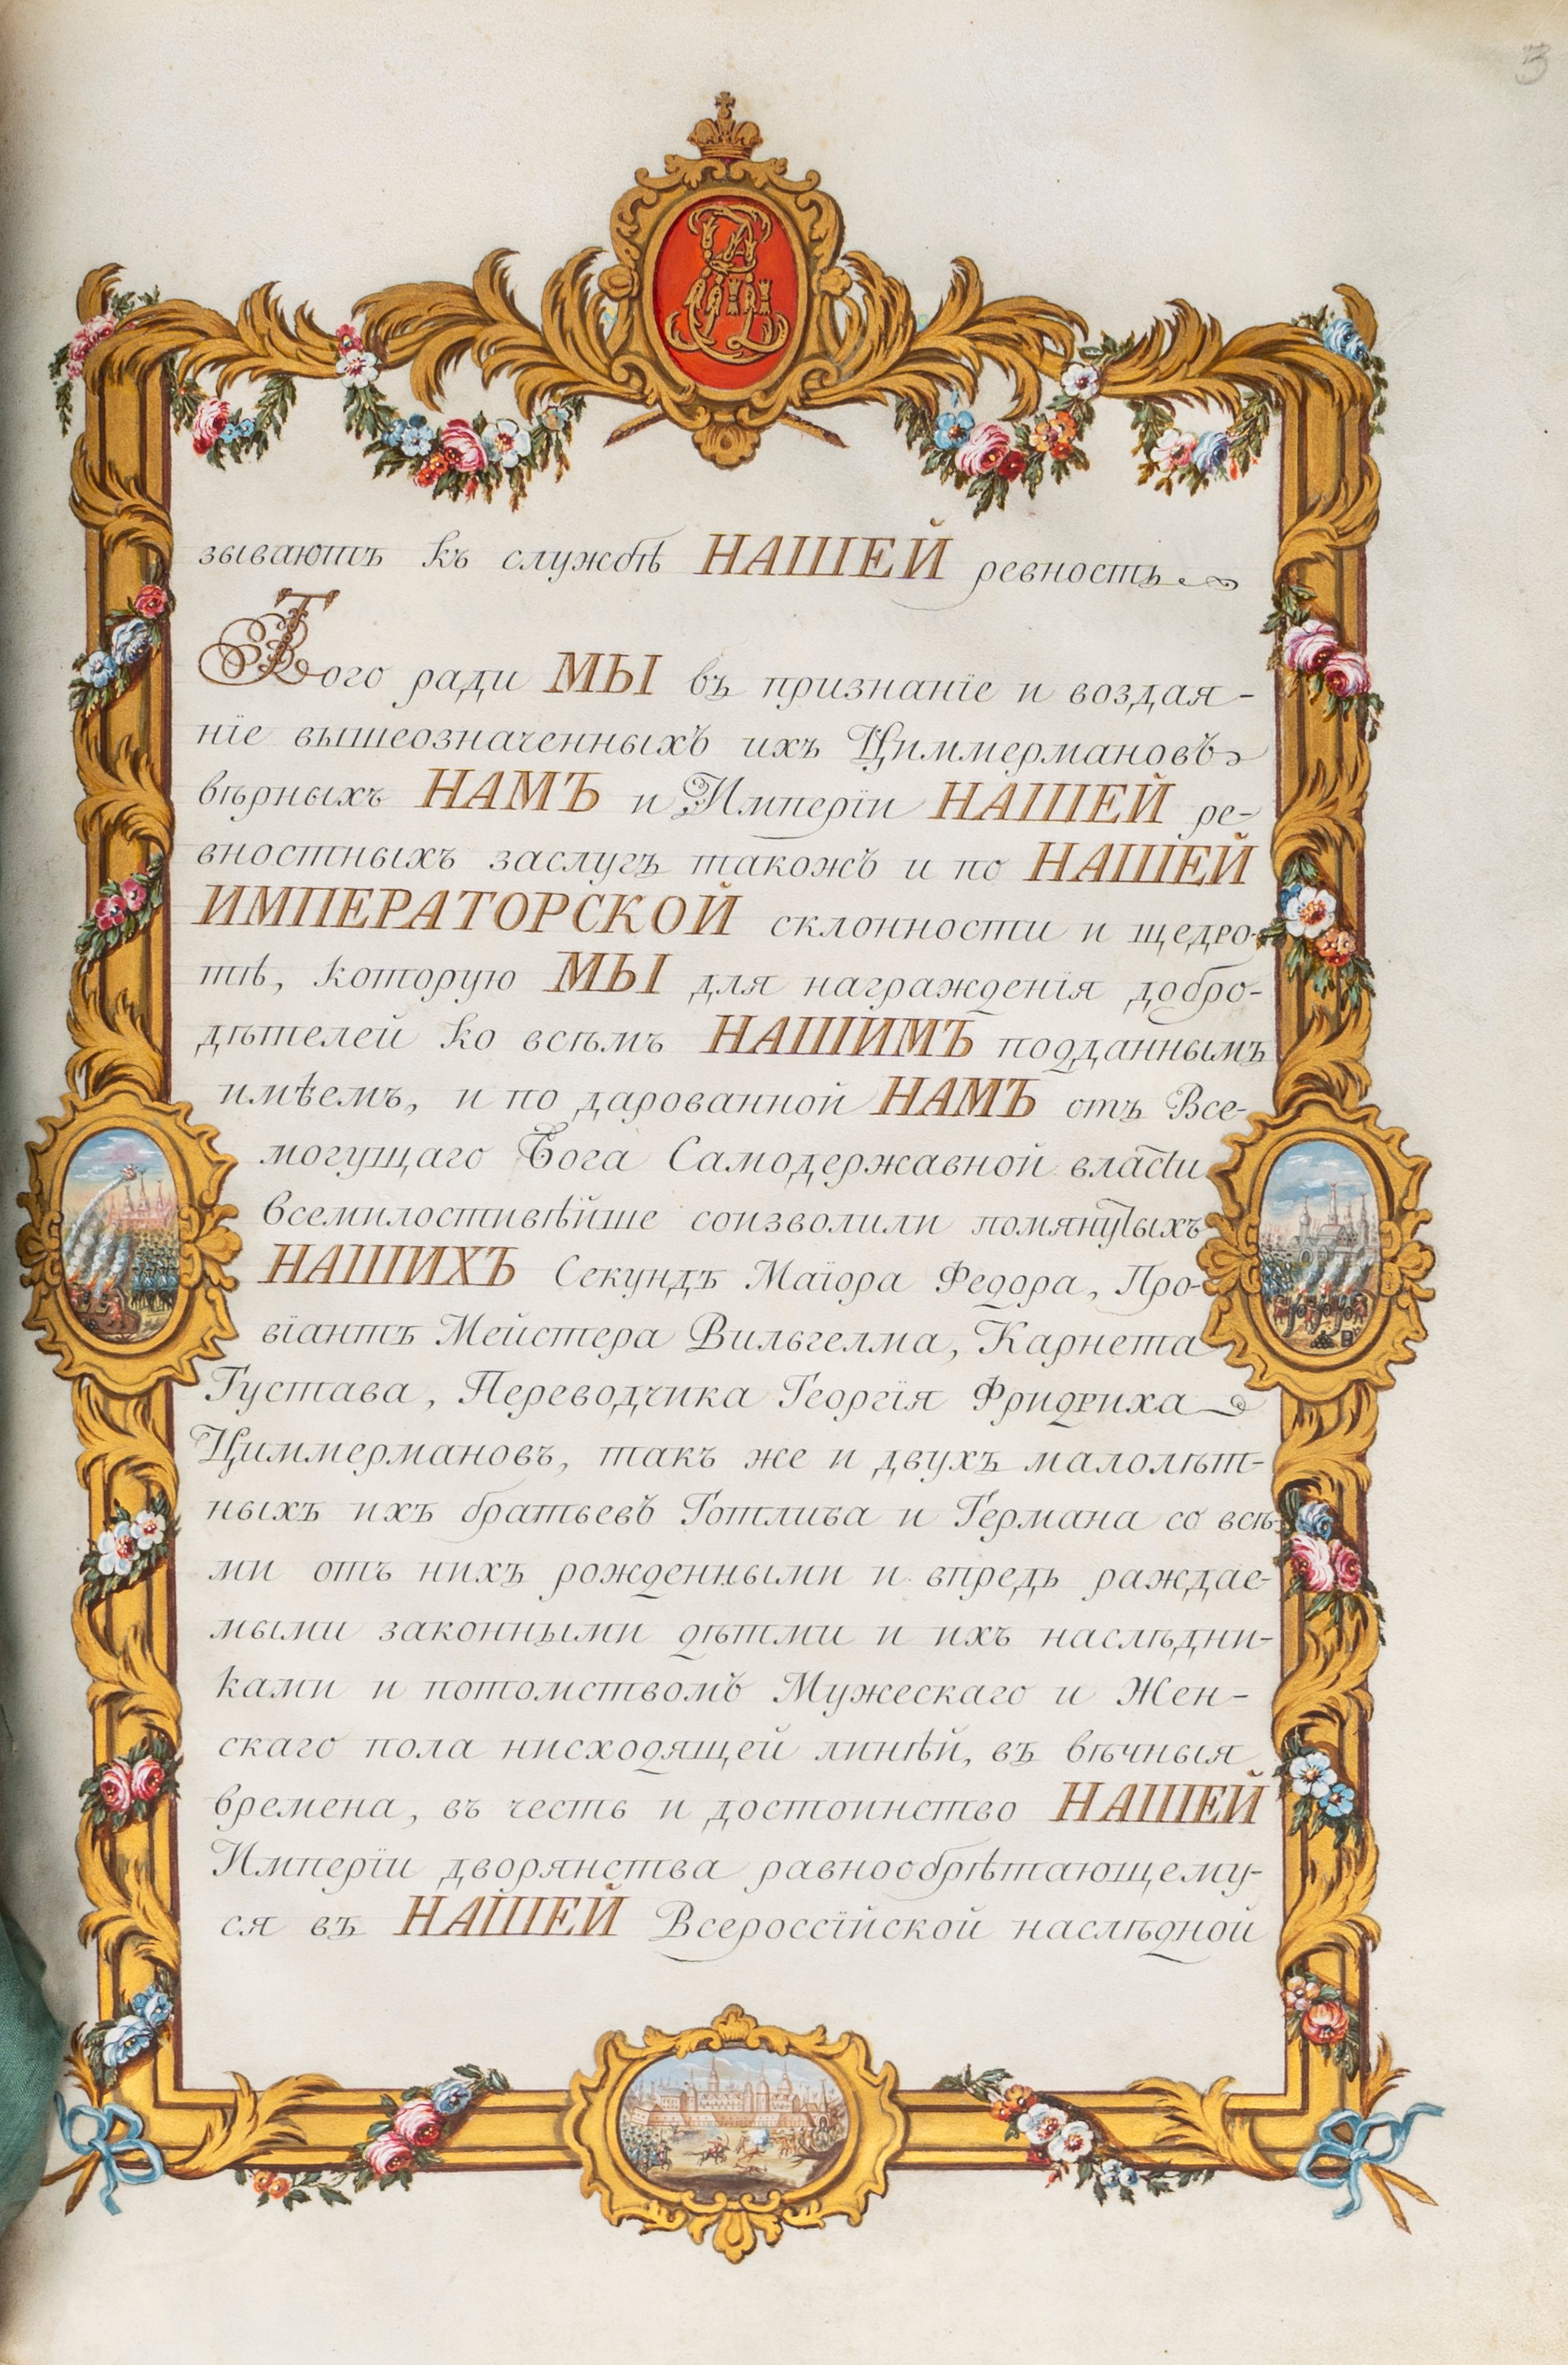 3
зываютъ къ службѣ НАШЕЙ ревность
Того ради МЫ въ признанїе и воздая-
нїе вышеозначенныхъ ихъ Циммермановъ
вѣрныхъ НАМЪ и Имперїи НАШЕЙ ре-
вностныхъ заслугъ такожъ и по НАШЕЙ
ИМПЕРАТОРСКОЙ склонности и щедро-
тѣ, которую МЫ для награжденїя добро-
дѣтелей ко всѣмъ НАШИМЪ подданнымъ
имѣемъ, и по дарованной НАМЪ отъ Все-
могущаго Бога Самодержавной власти
всемилостивѣйше соизволили помянутыхъ
НАШИХЪ Секундъ Маїора Федора, Про-
вїантъ Мейстера Вильгелма, Карнета
Густава, Переводчика Георгїя Фридриха
Циммермановъ, такъ же и двухъ малолѣт-
ныхъ ихъ братьевъ Готлиба и Германа со всѣ-
ми отъ нихъ рожденными и впредь раждае-
мыми законными дѣтми и ихъ наслѣдни-
ками и потомствомъ Мужескаго и Жен-
скаго пола нисходящей линѣй, въ вѣчныя
времена, въ честь и достоинство НАШЕЙ
Имперїи дворянства равнообрѣтающему-
ся въ НАШЕЙ Всероссїйской наслѣдной